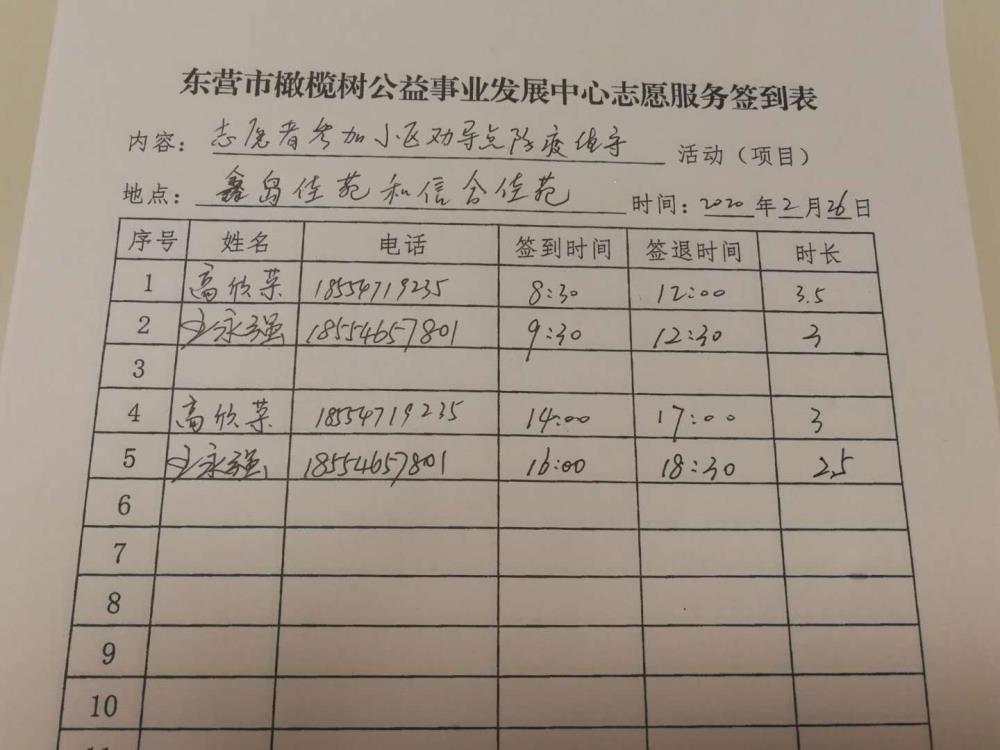 东营市橄榄树公益事业发展中心志愿服务签到表
内容：志愿者参加小区劝导点防疫值守 活动（项目）
地点：鑫岛佳苑和信合佳苑 时间：2020年2月26日
序号 姓名 电话 签到时间 签退时间 时长
1 高欣荣 18554719235 8:30 12:00 3.5
2 永强 18554657801 9:30 12:30 3
3
4 高欣荣 18554719235 14:00 17:00 3
5 永强 18554657801 16:00 18:30 2.5
6
7
8
9
10